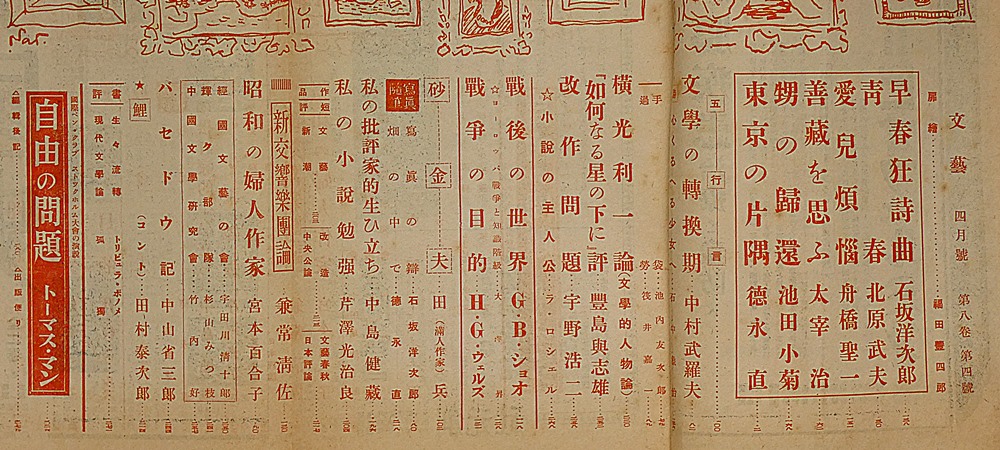 文藝 四月號 第八卷 第四號
扉繪 福田豐四郎
早春狂詩曲 石坂洋次郎
靑春 北原武夫
愛兒煩惱 舟橋聖一
善藏を思ふ 太宰治
甥の歸還 池田小菊
東京の片隅 德永直
五行言
文學の轉換期 中村武羅夫
手 袋 池内友次郎
過 勞 筏井嘉一
橫光利一論(文學的人物論)
『如何なる星の下に』評 豐島與志雄
改作問題 宇野浩二
☆小說の主人公 ラ・ロシェル
戰後の世界 G・B・ショオ
☆ヨーロッパ戰爭と知識階級
戰爭の目的 H・G・ウェルズ
砂金夫 田兵(滿人作家)
寫眞隨筆
寫眞の辯 石坂洋次郎
畑の中で 德永直
私の批評家的生ひ立ち 中島健藏
私の小說勉强 芹澤光治良
作品短評
文藝 改造 文藝春秋
新潮 中央公論 日本評論
新交響樂團論 兼常淸佐
昭和の婦人作家 宮本百合子
經國文藝の會 宇田川淸十郎
輝ク部隊 杉山みつ枝
中國文學硏究會 竹内好
バセドウ記 中山省三郎
★鯉(コント) 田村泰次郎
書評
生々流轉 トリビュラ・ボノメ
現代文學論 孤獨
國際ペン・クラブ ストックホルム大會の演說
自由の問題 トーマス・マン
△編輯後記 △出版便り
Nat.